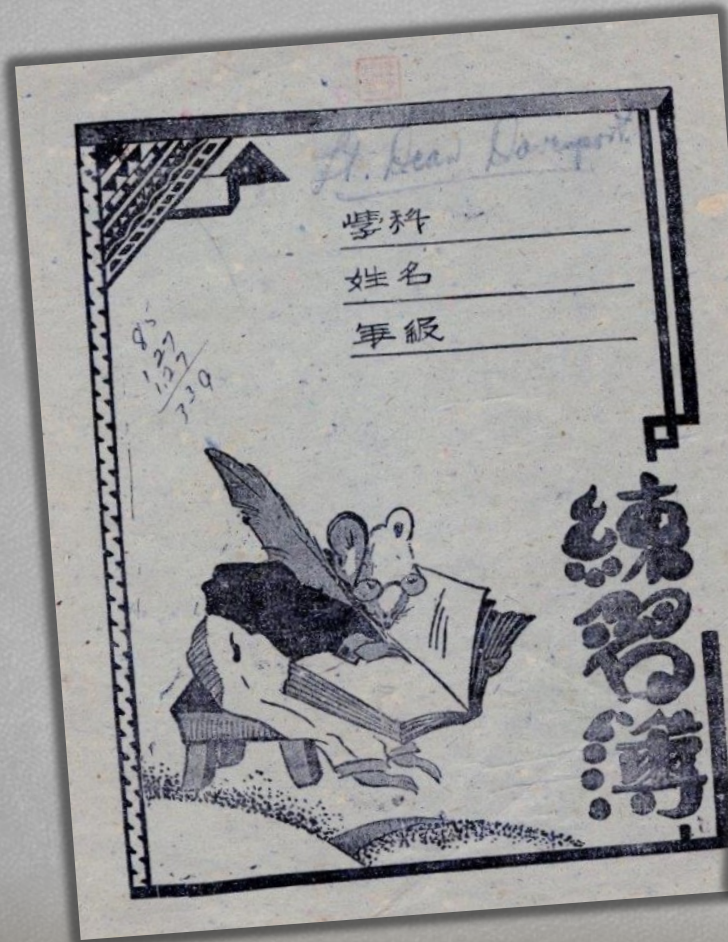 Lt. Dean Davenport
學科
姓名
年級
85
127
1.27
339
練習簿